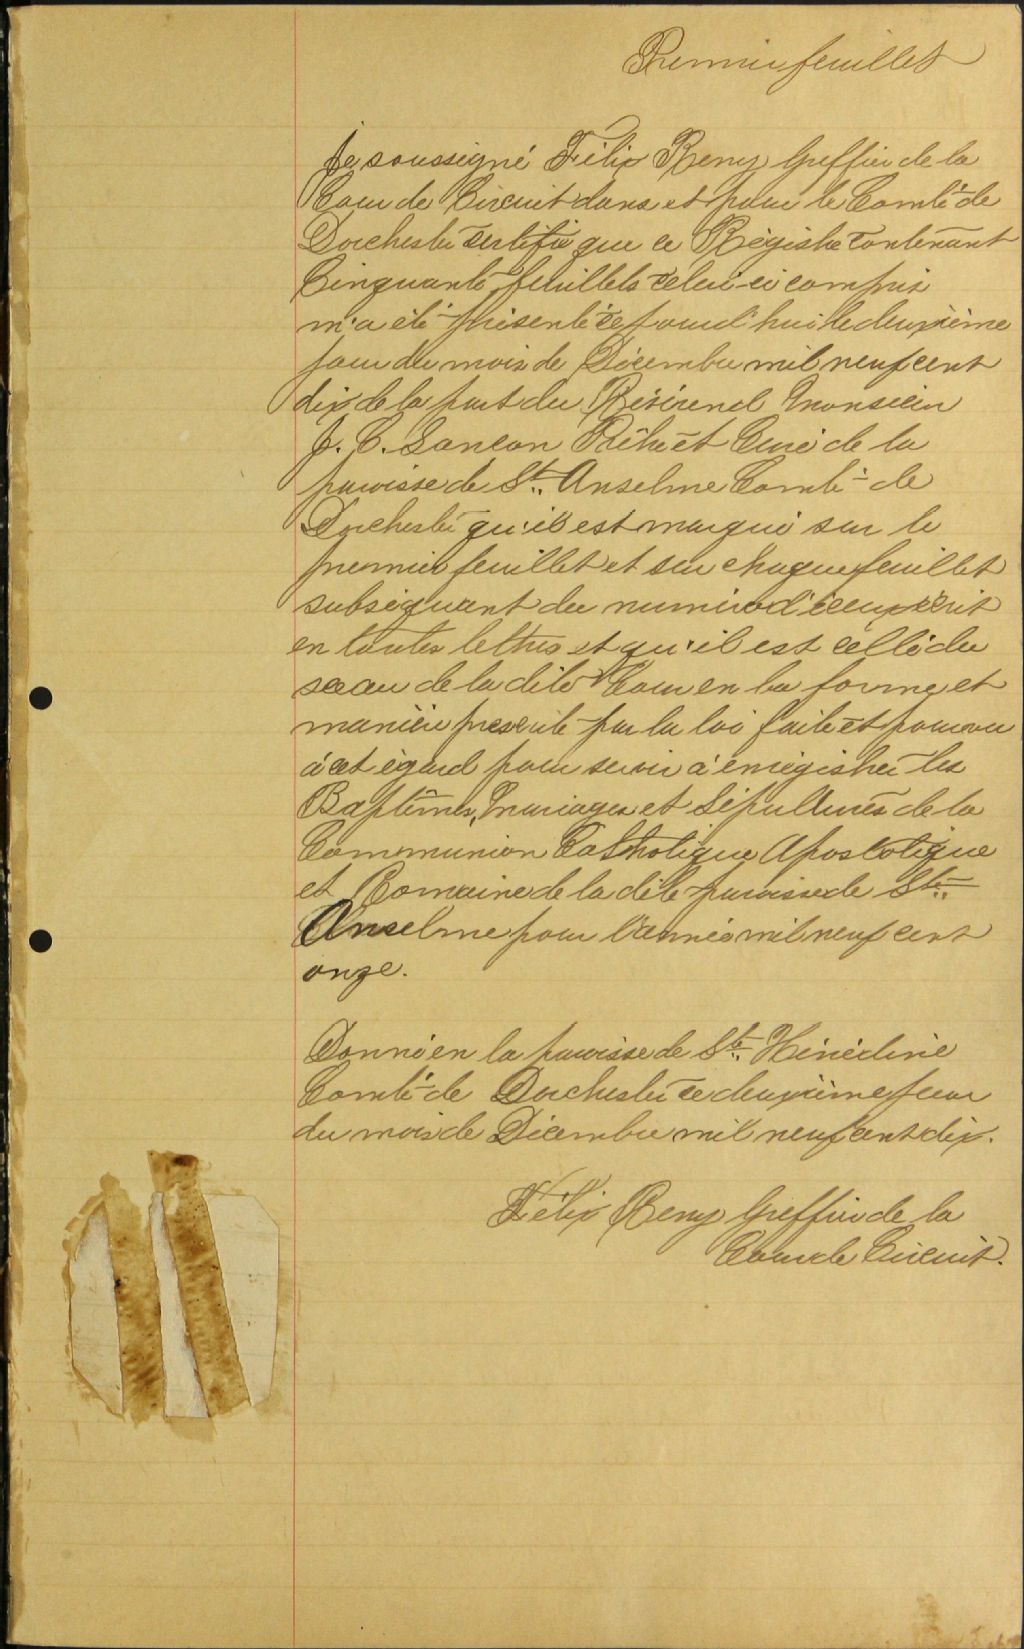 Premier feuillet
Je soussigné Félix Remy Greffier de la
Cour de Circuit dans et pour le Comté de
Dorchester certifie que ce Régistre contenant
Cinquante feuillets celui-ci compris
m'a été présenté ce jourd'hui le deuxième
jour du mois de Décembre mil neuf cent
dix de la part du Révérend Monsieur
J. C. Lancon Prêtre et Curé de la
paroisse de St. Anselme Comté de
Dorchester qu'il est marqué sur le
premier feuillet et sur chaque feuillet
subséquant du numéro d'iceux écrit
en toutes lettres et qu'il est cellé du
sceau de la dite Cour en la forme et
manière prescrite par la loi faite et pourvu
à cet égard pour servir à enrégistrer les
Baptêmes, Mariages et Sépultures de la
Communion Catholique Apostolique
et Romaine de la dite paroisse de St.
Anselme pour l'année mil neuf cent
onze.
Donné en la paroisse de Ste. Hénédine
Comté de Dorchester ce deuxième jour
du mois de Décembre mil neuf cent dix.
Félix Remy Greffier de la
Cour de Circuit.